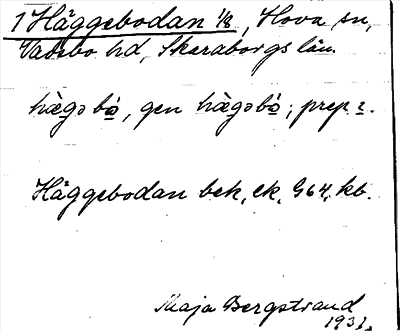 1 Häggebodan 1/8, Hova sn,
Vadsbo hd, Skaraborgs län.
hæ̀gəbó̤, gen hæ̀gəbó̤; prep.
Häggebodan bek. ek. G64, kb.
Maja Bergstrand
1931.